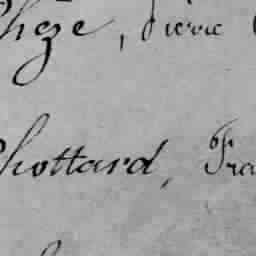 Chèze, Pierre
Chottard, Fra